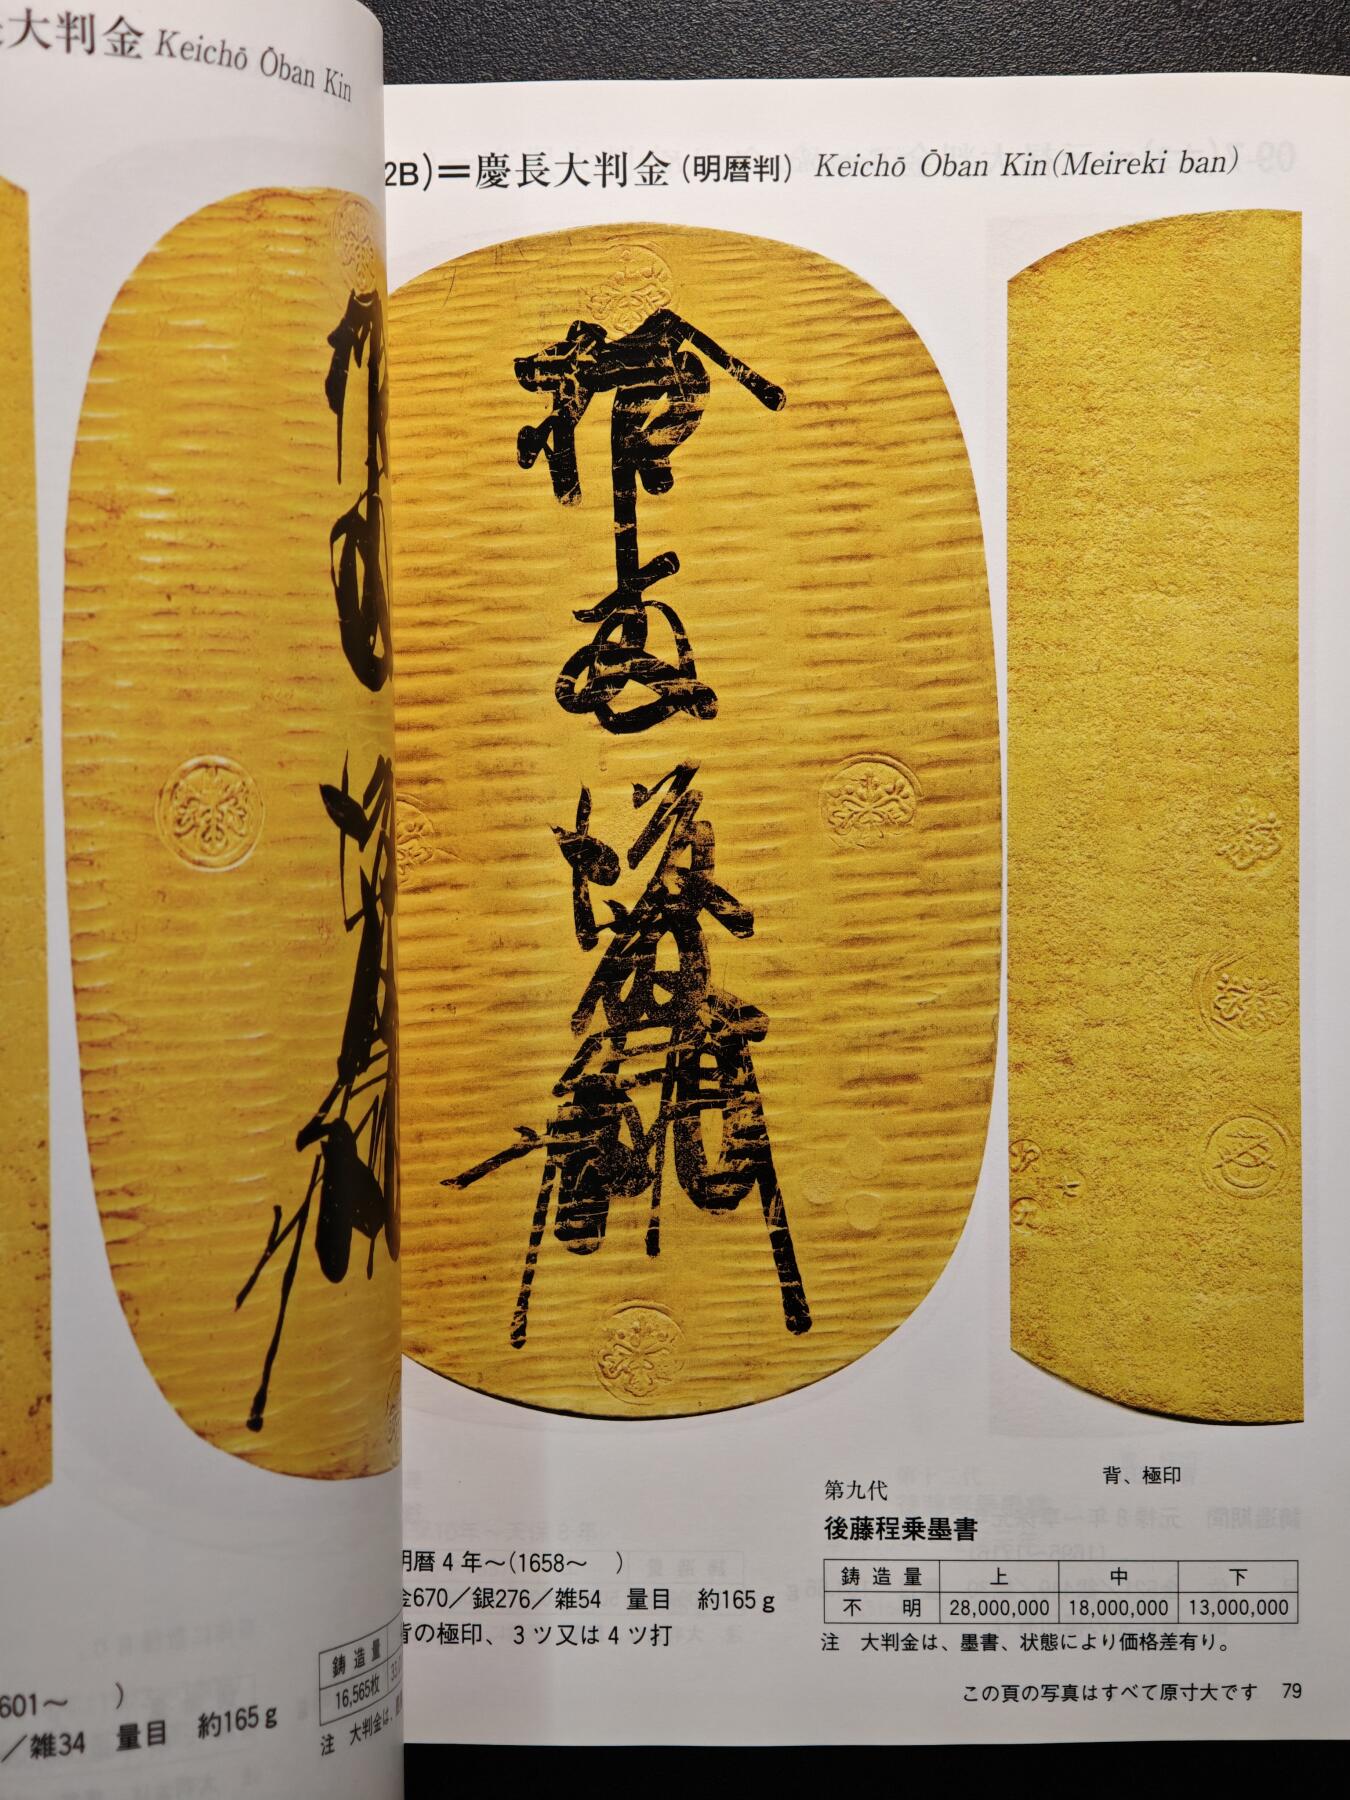 大判金 Keichō Ōban Kin
601～　　)
／雑34　量目　約165g
鋳造量
16,565枚
注　大判金は、
2B)＝慶長大判金(明暦判) Keichō Ōban Kin(Meireki ban)
明暦4年～(1658～　　)
金670／銀276／雑54　量目　約165g
背の極印、3ツ又は4ツ打
背、極印
第九代
後藤程乗墨書
鋳造量　上　中　下
不明　28,000,000　18,000,000　13,000,000
注　大判金は、墨書、状態により価格差有り。
この頁の写真はすべて原寸大です　79